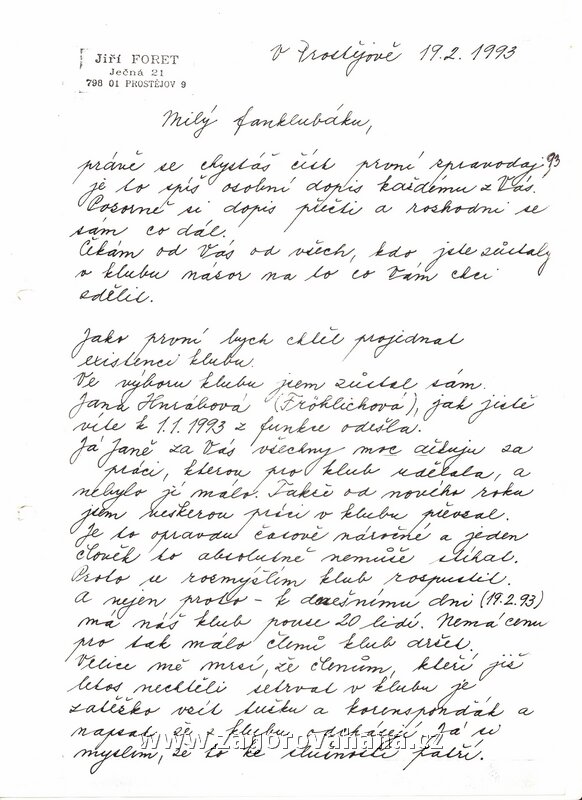 Jiří FORET
Ječná 21
798 01 PROSTĚJOV 9
V Prostějově 19.2.1993
Milý fanklubáku,
právě se chystáš číst první zpravodaj 93
je to spíš osobní dopis každému z Vás.
Pozorně si dopis přečti a rozhodni se
sám co dál.
Čekám od Vás od všech, kdo jste zůstaly
v klubu názor na to co Vám chci
sdělit.
Jako první bych chtěl projednat
existenci klubu.
Ve výboru klubu jsem zůstal sám.
Jana Hnrábová (Fröhlichová), jak jistě
víte k 1.1.1993 z funkce odešla.
Já Janě za Vás všechny moc děkuju za
práci, kterou pro klub udělala, a
nebylo jí málo. Takže od nového roku
jsem veškerou práci v klubu převzal.
Je to opravdu časově náročné a jeden
člověk to absolutně nemůže stíhat.
Proto se rozmýšlím klub rozpustit.
A nejen proto - k dnešnímu dni (19.2.93)
má náš klub pouze 20 lidí. Nemá cenu
pro tak málo členů klub držet.
Velice mě mrzí, že členům, kteří již
letos nechtěli setrvat v klubu je
zatěžko vzít tušku a korenspondák a
napsat, že z klubu odcházejí. Já si
myslím, že to ke slušnosti patří.
www.zagorovahana.cz